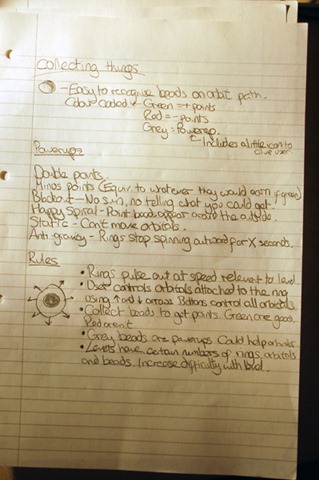 Collecting things
- Easy to recognise beads on orbit path.
Colour coded. Green = + points
Red = - points
Grey = Powerup
Includes a little icon to
give user
Powerups
Double points.
Minus points (Equiv. to whatever they would earn if green)
Blackout - No sun, no telling what you could get.
Happy Spiral - Point beads appear around the outside.
Static - Can't move orbitals.
Anti gravity - Rings stop spinning outward for X seconds.
Rules
• Rings pulse out at speed relevent to level.
• User controls orbitals attached to the ring
using ↑ and ↓ arrows. Buttons control all orbitals.
• Collect beads to get points. Green are good,
Red arent
• Grey beads are powerups. Could help or hinder.
• Levels have certain numbers of rings, orbitals
and beads. Increase difficulty with level.